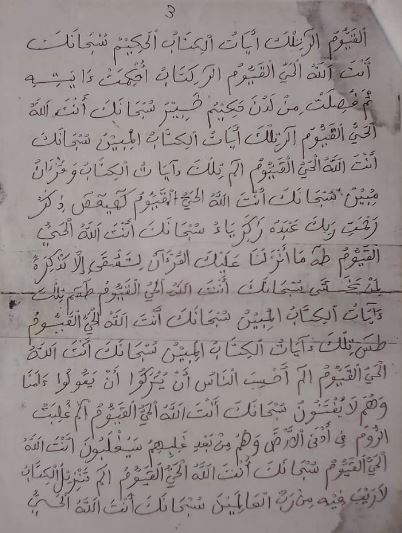 3
القَيُّومُ الرَ تِلْكَ ايَاتُ الكِتَابُ الحَكِيمُ سُبْحَانَكَ
أَنْتَ اللَّهُ الحَيُّ القَيُّومُ الر كِتَابُ أُحْكِمَتْ ءَايَتِهِ
ثُمَّ فُصِلَتْ مِنْ لَدُنْ حَكِيمٍ خَبِيرٍ سُبْحَانَكَ أَنْتَ اللَّهُ
الحَيُّ القَيُّومُ الر تِلْكَ آيَاتُ الكِتَابُ المُبِينُ سُبْحَانَكَ
أَنْتَ اللَّهُ الحَيُّ القَيُّومُ الم تِلْكَ ءايَاتُ الكِتَابُ وَقُرْءَانُ
مُبِينٌ سُبْحَانَكَ أَنْتَ اللَّهُ الحَيُّ القَيُّومُ كَهَيَعَصَ ذِكْرُ
رَحْمَتِ رَبِكَ عَبْدَهُ زَكَرِيَاءَ سُبْحَانَكَ أَنْتَ اللَّهُ الحَيُّ
القَيُّومُ طَهَ مَا أَنْزَلْنَا عَلَيْكَ القُرْءَانَ لِتَشْقَى إِلَّا تَذْكِرَةً
لِمَنْ يَخْشَى سُبْحَانَكَ أَنْتَ اللَّهُ الحَيُّ القَيُّومُ طَسَمَ تِلْكَ
ءَايَاتُ الكِتَابُ المُبِينُ سُبْحَانَكَ أَنْتَ اللَّهُ الحَيُّ القَيُّومُ
طَسَ تِلْكَ ءَايَاتُ الكِتَابُ المُبِينُ سُبْحَانَكَ أَنْتَ اللَّهُ
الحَيُّ القَيُّومُ الم أَحَسِبَ النَّاسُ أَنْ يُتْرَكُوا أَنْ يَقُولُوا ءَامَنَا
وَهُمْ لَا يُفْتَنُونَ سُبْحَانَكَ أَنْتَ اللَّهُ الحَيُّ القَيُّومُ الم غُلِبَتِ
الرُّومُ فِي أَدْنَى الأَرْضِ وَهُمْ مِنْ بَعْدِ غَلَبِهِمْ سَيَغْلِبُونَ أَنْتَ اللَّهُ
الحَيُّ القَيُّومُ سُبْحَانَكَ أَنْتَ اللَّهُ الحَيُّ القَيُّومُ الم تَنْزِيلُ الكِتَابُ
لَا رَيْبَ فِيهِ مِنْ رَبِّ العَالَمِينَ سُبْحَانَكَ أَنْتَ اللَّهُ الحَيُّ